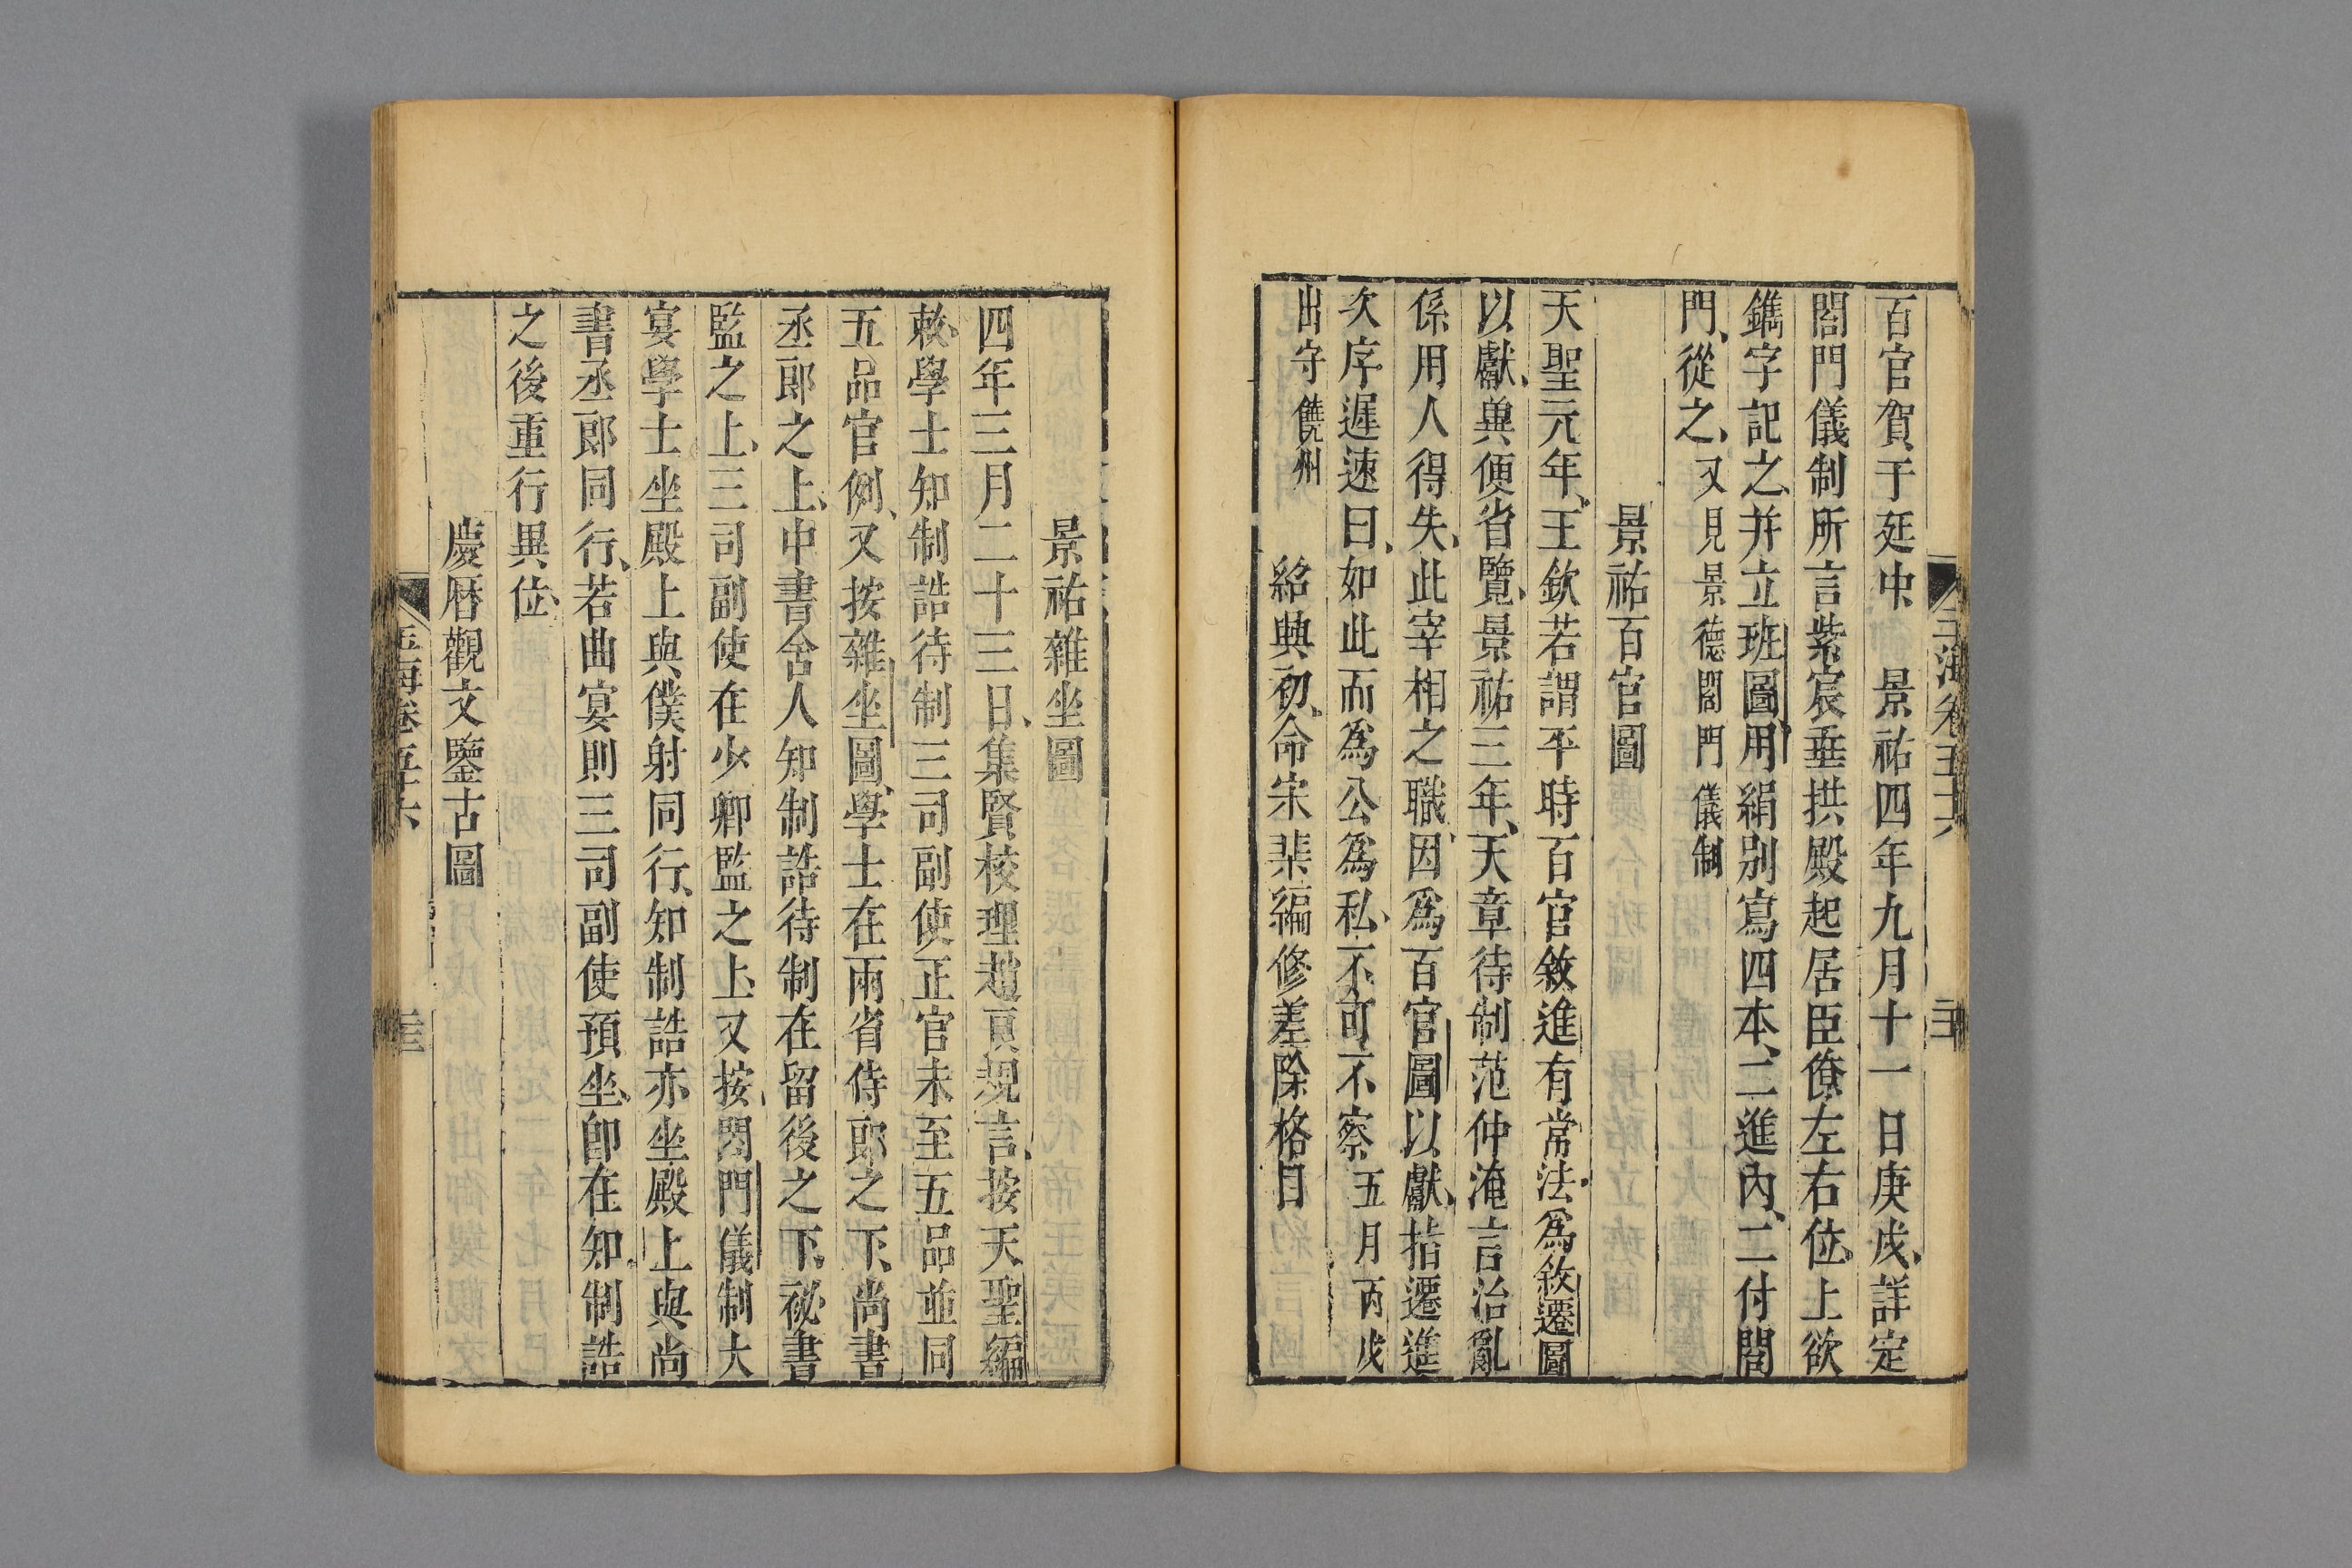 玉海卷五十六
百官賀于廷中　景祐四年九月十一日庚戌詳定
閤門儀制所言紫宸垂拱殿起居臣僚左右位上欲
鐫字記之并立班圖用絹别寫四本二進內二付閤
門從之又見景德閤門儀制
景祐百官圖
天聖元年王欽若謂平時百官敘進有常法爲敘遷圖
以獻兾便省覽景祐三年天章待制范仲淹言治亂
係用人得失此宰相之職因爲百官圖以獻指遷進
次序遲速曰如此而爲公爲私不可不察五月丙戌
出守饒州　紹興初命宋棐編修差除格目
景祐雜坐圖
四年三月二十三日集賢校理趙㮣言按天聖編
敕學士知制誥待制三司副使正官未至五品並同
五品官例又按雜坐圖學士在兩省侍郎之下尚書
丞郎之上中書舍人知制誥待制在留後之下祕書
監之上三司副使在少卿監之上又按閤門儀制大
宴學士坐殿上與僕射同行知制誥亦坐殿上與尚
書丞郎同行若曲宴則三司副使預坐卽在知制誥
之後重行異位
慶曆觀文鑒古圖
玉海卷五十六